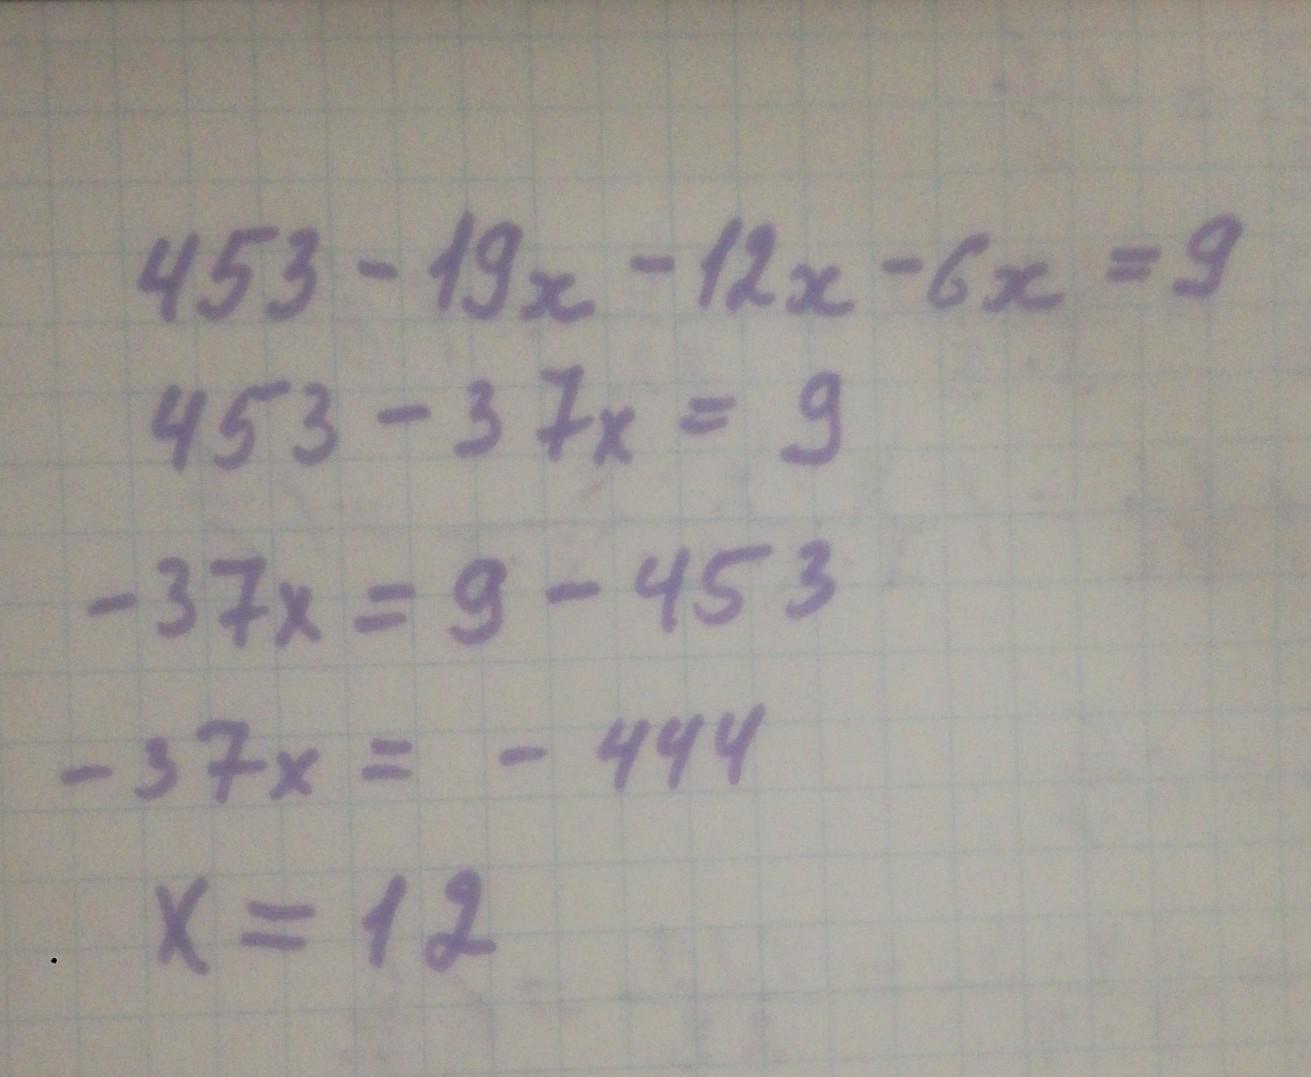 453 - 19x - 12x - 6x = 9
453 - 37x = 9
- 37x = 9 - 453
- 37x = - 444
x = 12